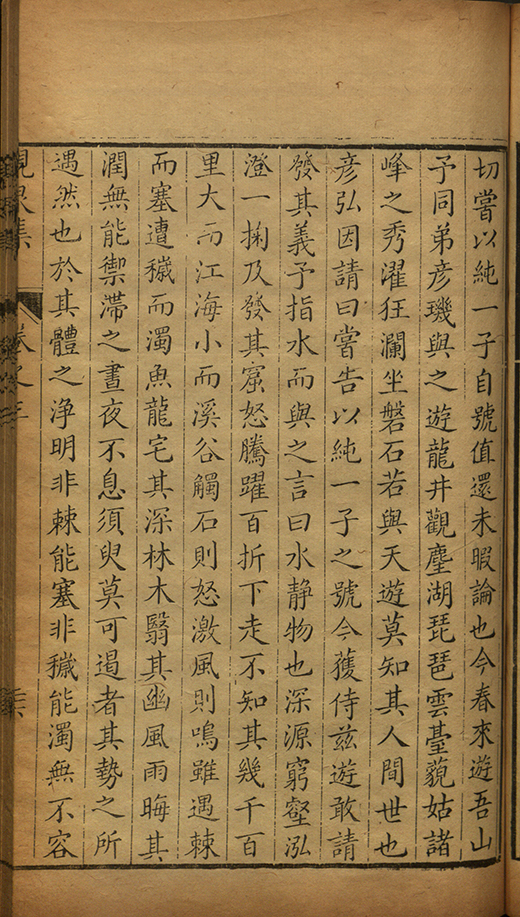 切嘗以純一子自號值還未暇論也今春來遊吾山
予同弟彥璣與之遊龍井觀塵湖琵琶雲臺藐姑諸
峰之秀濯狂瀾坐磐石若與天遊莫知其人間世也
彥弘因請曰嘗告以純一子之號今獲侍茲遊敢請
發其義予指水而與之言曰水静物也深源窮壑泓
澄一掬及發其窾怒騰躍百折下走不知其幾千百
里大而江海小而溪谷觸石則怒激風則鳴雖遇棘
而塞遭穢而濁魚龍宅其深林木翳其幽風雨晦其
潤無能禦滯之晝夜不息須臾莫可遏者其勢之所
遇然也於其體之浄明非棘能塞非穢能濁無不容